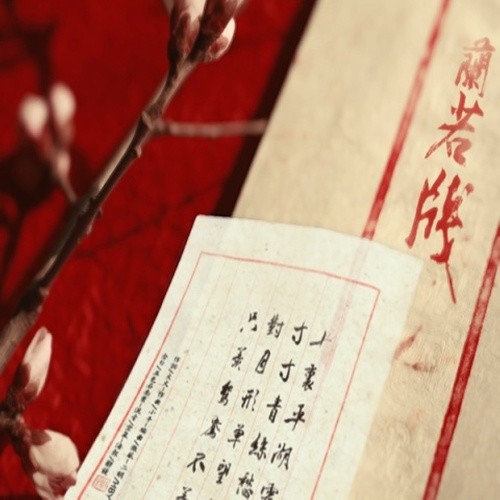 蘭若牋
十裏平湖霜
寸寸青絲愁
對月形單望
只羨鴛鴦不羨